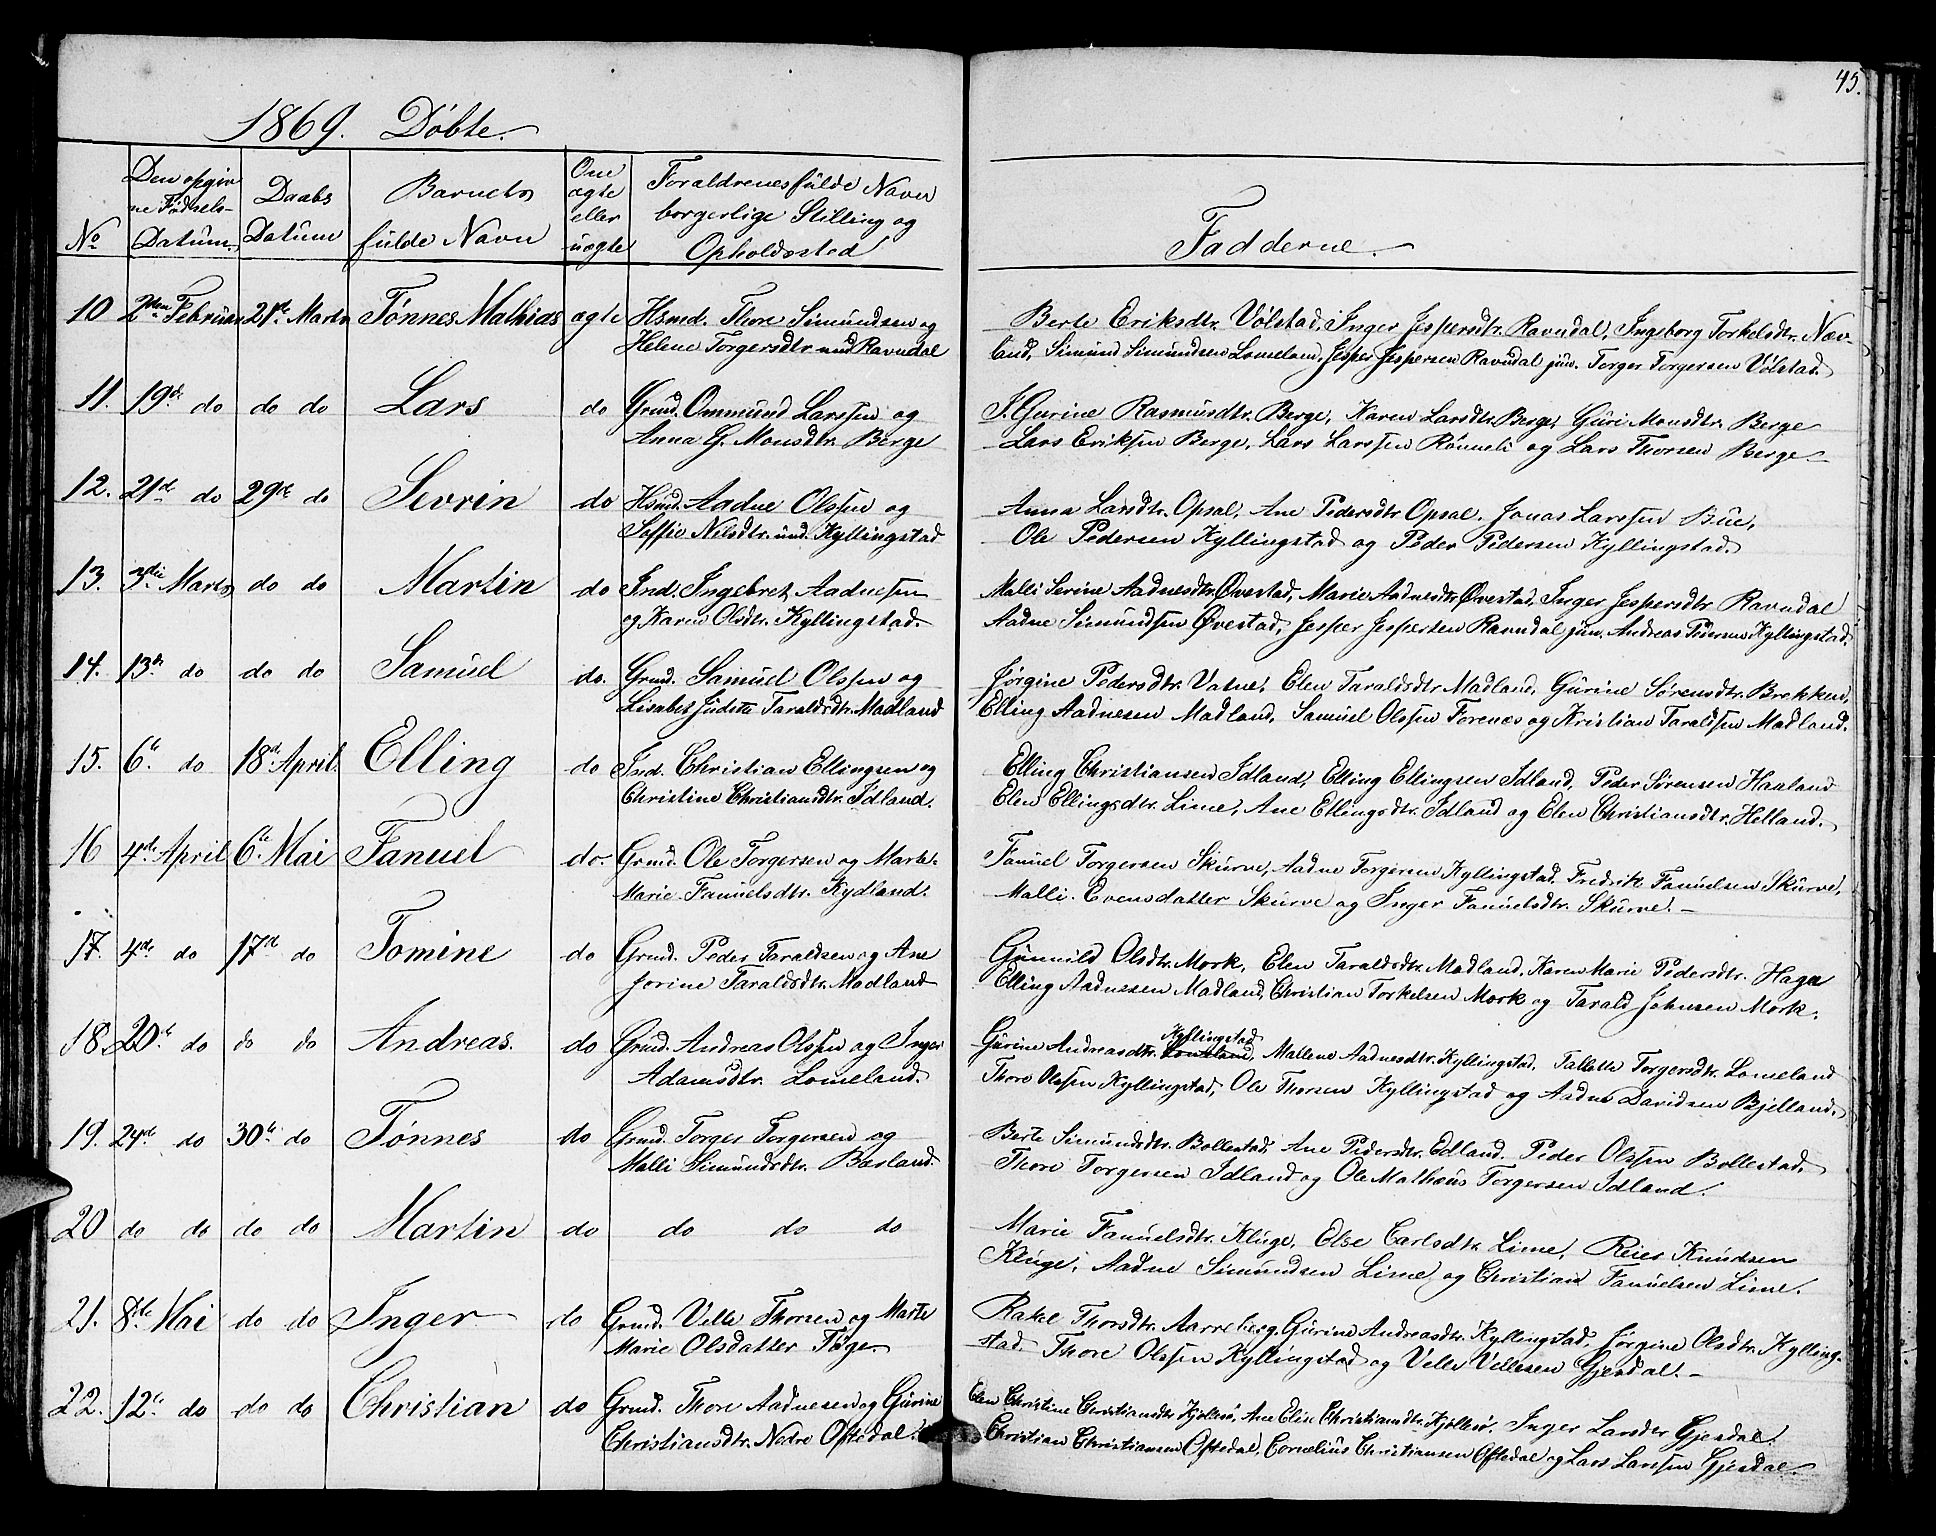 45.
1869. Döbte.
No
Den opgiv
ne Födsels-
Datum.
Daabs
Datum
Barnets
fulde Navn
Om
ægte
eller
uægte
Foraldrenes fulde Navn
borgerlige Stilling og
Opholdssted
Fadderne.
10 2den Februar 21de Marts Tønnes Mathias ægte Hsmd. Thore Simundsen og
Helene Torgersdtr. und Ravndal
Berte Eriksdtr. Völstad, Inger Jespersdtr. Ravndal, Ingeborg Torkelsdtr. Næv-
land, Simund Simundsen Lomeland, Jesper Jespersen Ravndal jun. Torger Torgersen Völstad.
11. 19de do do do Lars do Grmd. Ommund Larssen og
Anna G. Monsdtr. Berge
J. Gurine Rasmusdtr. Berge, Karen Larsdtr. Berge, Guri Monsdtr. Berge
Lars Eriksen Berge, Lars Larssen Rönneli og Lars Thorsen Berge
12. 21de do 29de do Sevrin do Hsmd. Aadne Olssen og
Soffie Nilsdtr. und. Kyllingstad
Anna Larsdtr. Opsal, Ane Pedersdtr. Opsal. Jonas Larssen Bue,
Ole Pedersen Kyllingstad og Peder Pedersen Kyllingstad.
13. 3die Marts do do Martin do Ind. Ingebret Aadnessen
og Karen Olsdtr. Kyllingstad.
Malli Serine Aadnesdtr. Øvestad, Marie Aadnesdtr. Øvestad, Inger Jespersdtr. Ravndal
Aadne Simundsen Øvestad, Jesper Jespersen Ravndal jun. Andreas Pedersen Kyllingstad.
14. 13de do do do Samuel do. Grmd. Samuel Olssen og
Lisabet Judite Taraldsdtr. Madland
Jørgine Pedersdtr. Vatne, Elen Taraldsdtr. Madland, Gurine Sørensdtr. Brekken,
Elling Aadnesen Madland, Samuel Olssen Forenæs og Kristian Taraldsen Madland.
15. 6te do 18de April. Elling do Ind. Christian Ellingsen og
Christine Christiansdtr. Idland.
Elling Christiansen Idland, Elling Ellingsen Idland, Peder Sørensen Haaland
Elen Ellingsdtr. Lime, Ane Ellingsdtr. Idland og Elen Christiansdtr. Helland.
16 4de April 6te Mai Fanuel do. Grmd. Ole Torgersen og Marte
Marie Fanuelsdtr. Kydland.
Fanuel Torgersen Skurve, Aadne Torgersen Kyllingstad. Fredrik Fanuelsen Skurve,
Malli Evensdatter Skurve og Inger Fanuelsdtr. Skurve.
17. 4de do 17de do Tomine do Grmd. Peder Taraldsen og Ane
Jorine Taraldsdtr. Madland
Gunnild Olsdtr. Mork, Elen Taraldsdtr. Madland, Karen Marie Pedersdtr. Haga
Elling Aadnesen Madland, Christian Torkelsen Mork og Tarald Johnsen Mork.
18. 20de do do do Andreas. do Grmd. Andreas Olssen og Inger
Adamsdtr. Lomeland.
Kyllingstad
Gurine Andreasdtr. Lomeland, Mallene Aadnesdtr. Kyllingstad, Tallette Torgersdtr. Lomeland
Thore Olssen Kyllingstad, Ole Thorsen Kyllingstad og Aadne Davidsen Bjelland.
19. 24de do 30te do Tønnes do Grmd. Torger Torgersen og
Malli Simundsdtr. Barland.
Berte Simundsdtr. Bollestad, Ane Pedersdtr. Edland. Peder Olssen Bollestad,
Thore Torgersen Idland og Ole Mathæus Torgersen Idland.
20 do do do do Martin do do do do
Marie Fanuelsdtr. Kluge, Else Carlsdtr. Lime, Reier Knudsen
Kluge, Aadne Simundsen Lime og Christian Fanuelsen Lime.
21. 8de Mai do do Inger do Grmd. Velle Thorsen og Marte
Marie Olsdatter Tøge
Rakel Thorsdtr. Aarreberg, Gurine Andreasdtr. Kyllingstad, Jørgine Olsdtr. Kylling-
stad Thore Olssen Kyllingstad og Velle Vellesen Gjesdal.
22. 12te do do do Christian do Grmd. Thore Aadnesen og Gurine
Christiansdtr. Nedre Oftedal.
Elen Christine Christiansdtr. Kjollesø, Ane Elise Christiansdtr. Kjollesø, Inger Larsdtr. Gjesdal.
Christian Christiansen Oftedal, Cornelius Christiansen Oftedal og Lars Larssen Gjesdal.